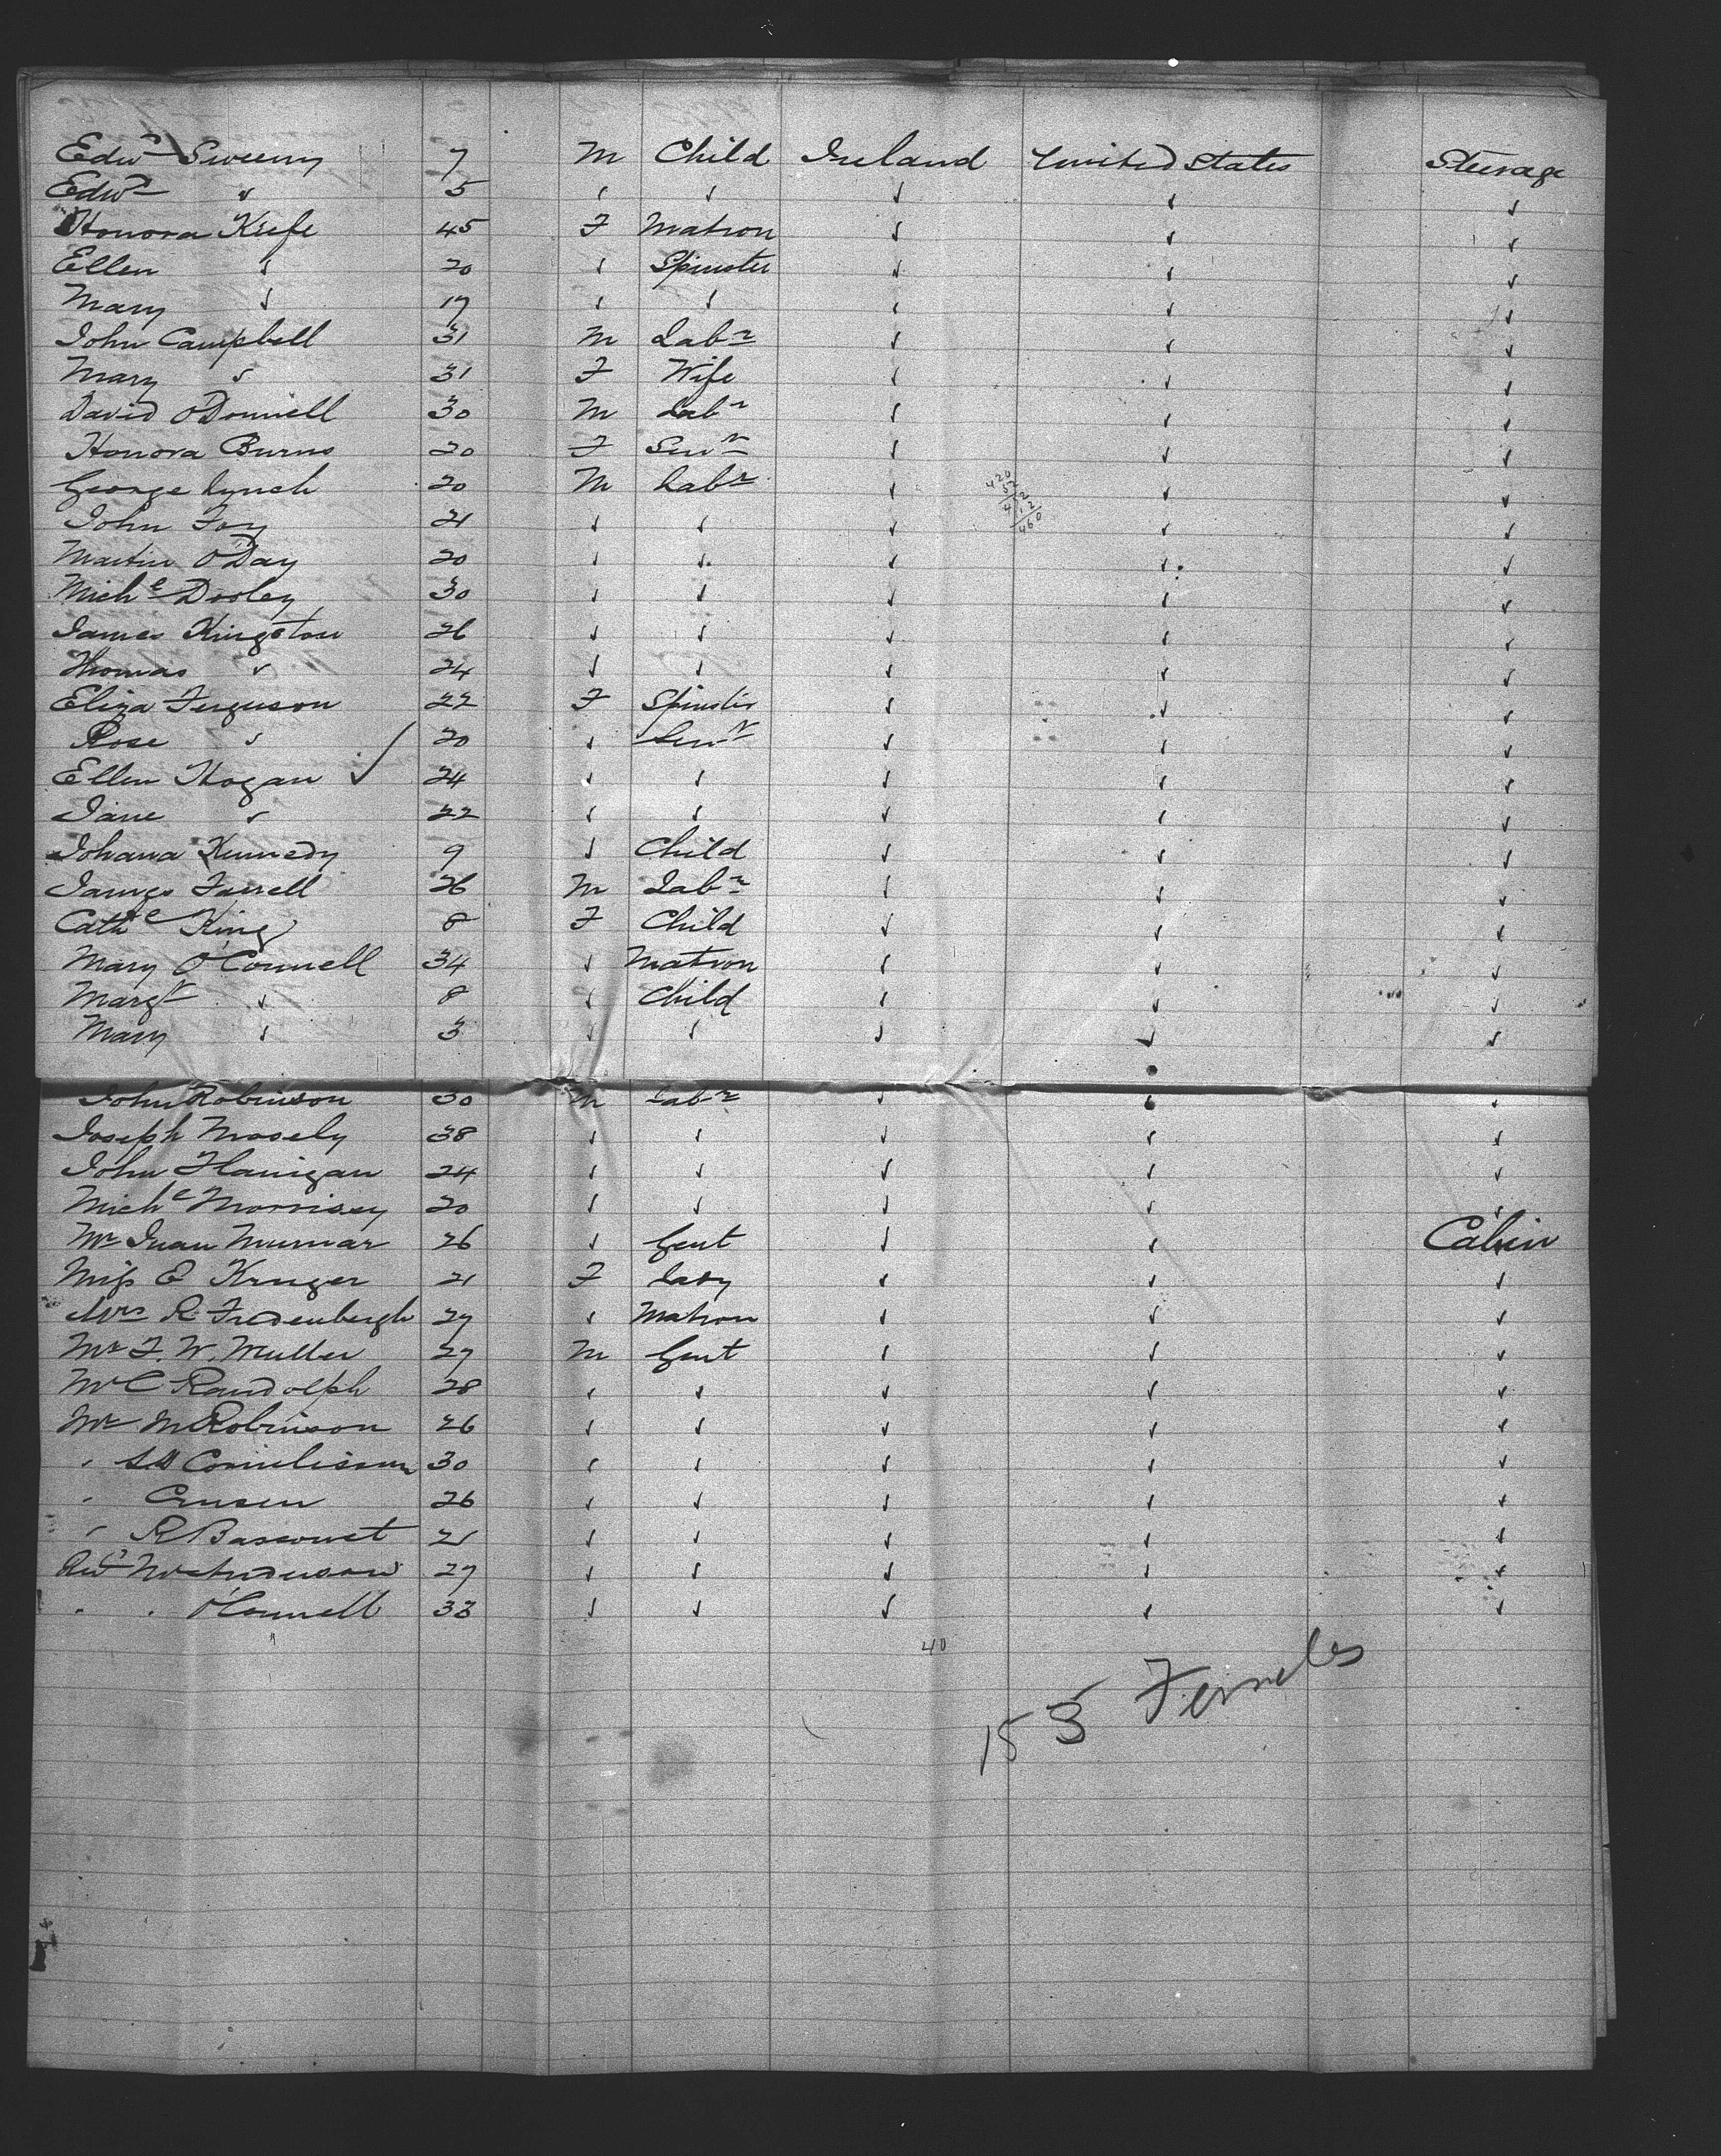 Edwd Sweeny 7 M Child Ireland United States Steerage
Edwd " 5 " " " " "
Honora Kiefe 45 F Matron " " "
Ellen " 20 " Spinster " " "
Mary " 17 " " " " "
John Campbell 31 M Labr " " "
Mary " 31 F Wife " " "
David O'Donnell 30 M Labr " " "
Honora Burns 20 F Servt " " "
George Lynch 20 M Labr " " "
John Foy 21 " " " " "
Martin O'Day 20 " " " " "
Michl Dooley 30 " " " " "
James Kingston 26 " " " " "
Thomas " 24 " " " " "
Eliza Ferguson 22 F Spinster " " "
Rose " 20 " Servt " " "
Ellen Hogan ✓ 24 " " " " "
Jane " 22 " " " " "
Johana Kennedy 9 " Child " " "
James Farrell 26 M Labr " " "
Cathe King 8 F Child " " "
Mary O'Connell 34 " Matron " " "
Margt " 8 " Child " " "
Mary " 3 " " " " "
John Robinson 30 M Labr " " "
Joseph Mosely 38 " " " " "
John Flanigan 24 " " " " "
Michl Morrisey 20 " " " " "
Mr Juan 26 " Gent " " Cabin
Miss E Kruger 21 F Lady " " "
Mrs R Fredenbergh 27 " Matron " " "
Mr F. W. Muller 27 M Gent " " "
Mr C Randolph 28 " " " " "
Mr M Robinson 26 " " " " "
" 30 " " " " "
" Crusen 26 " " " " "
" R 21 " " " " "
Revd Mr Anderson 27 " " " " "
" " O'Connell 33 " " " " "
40
153 Females